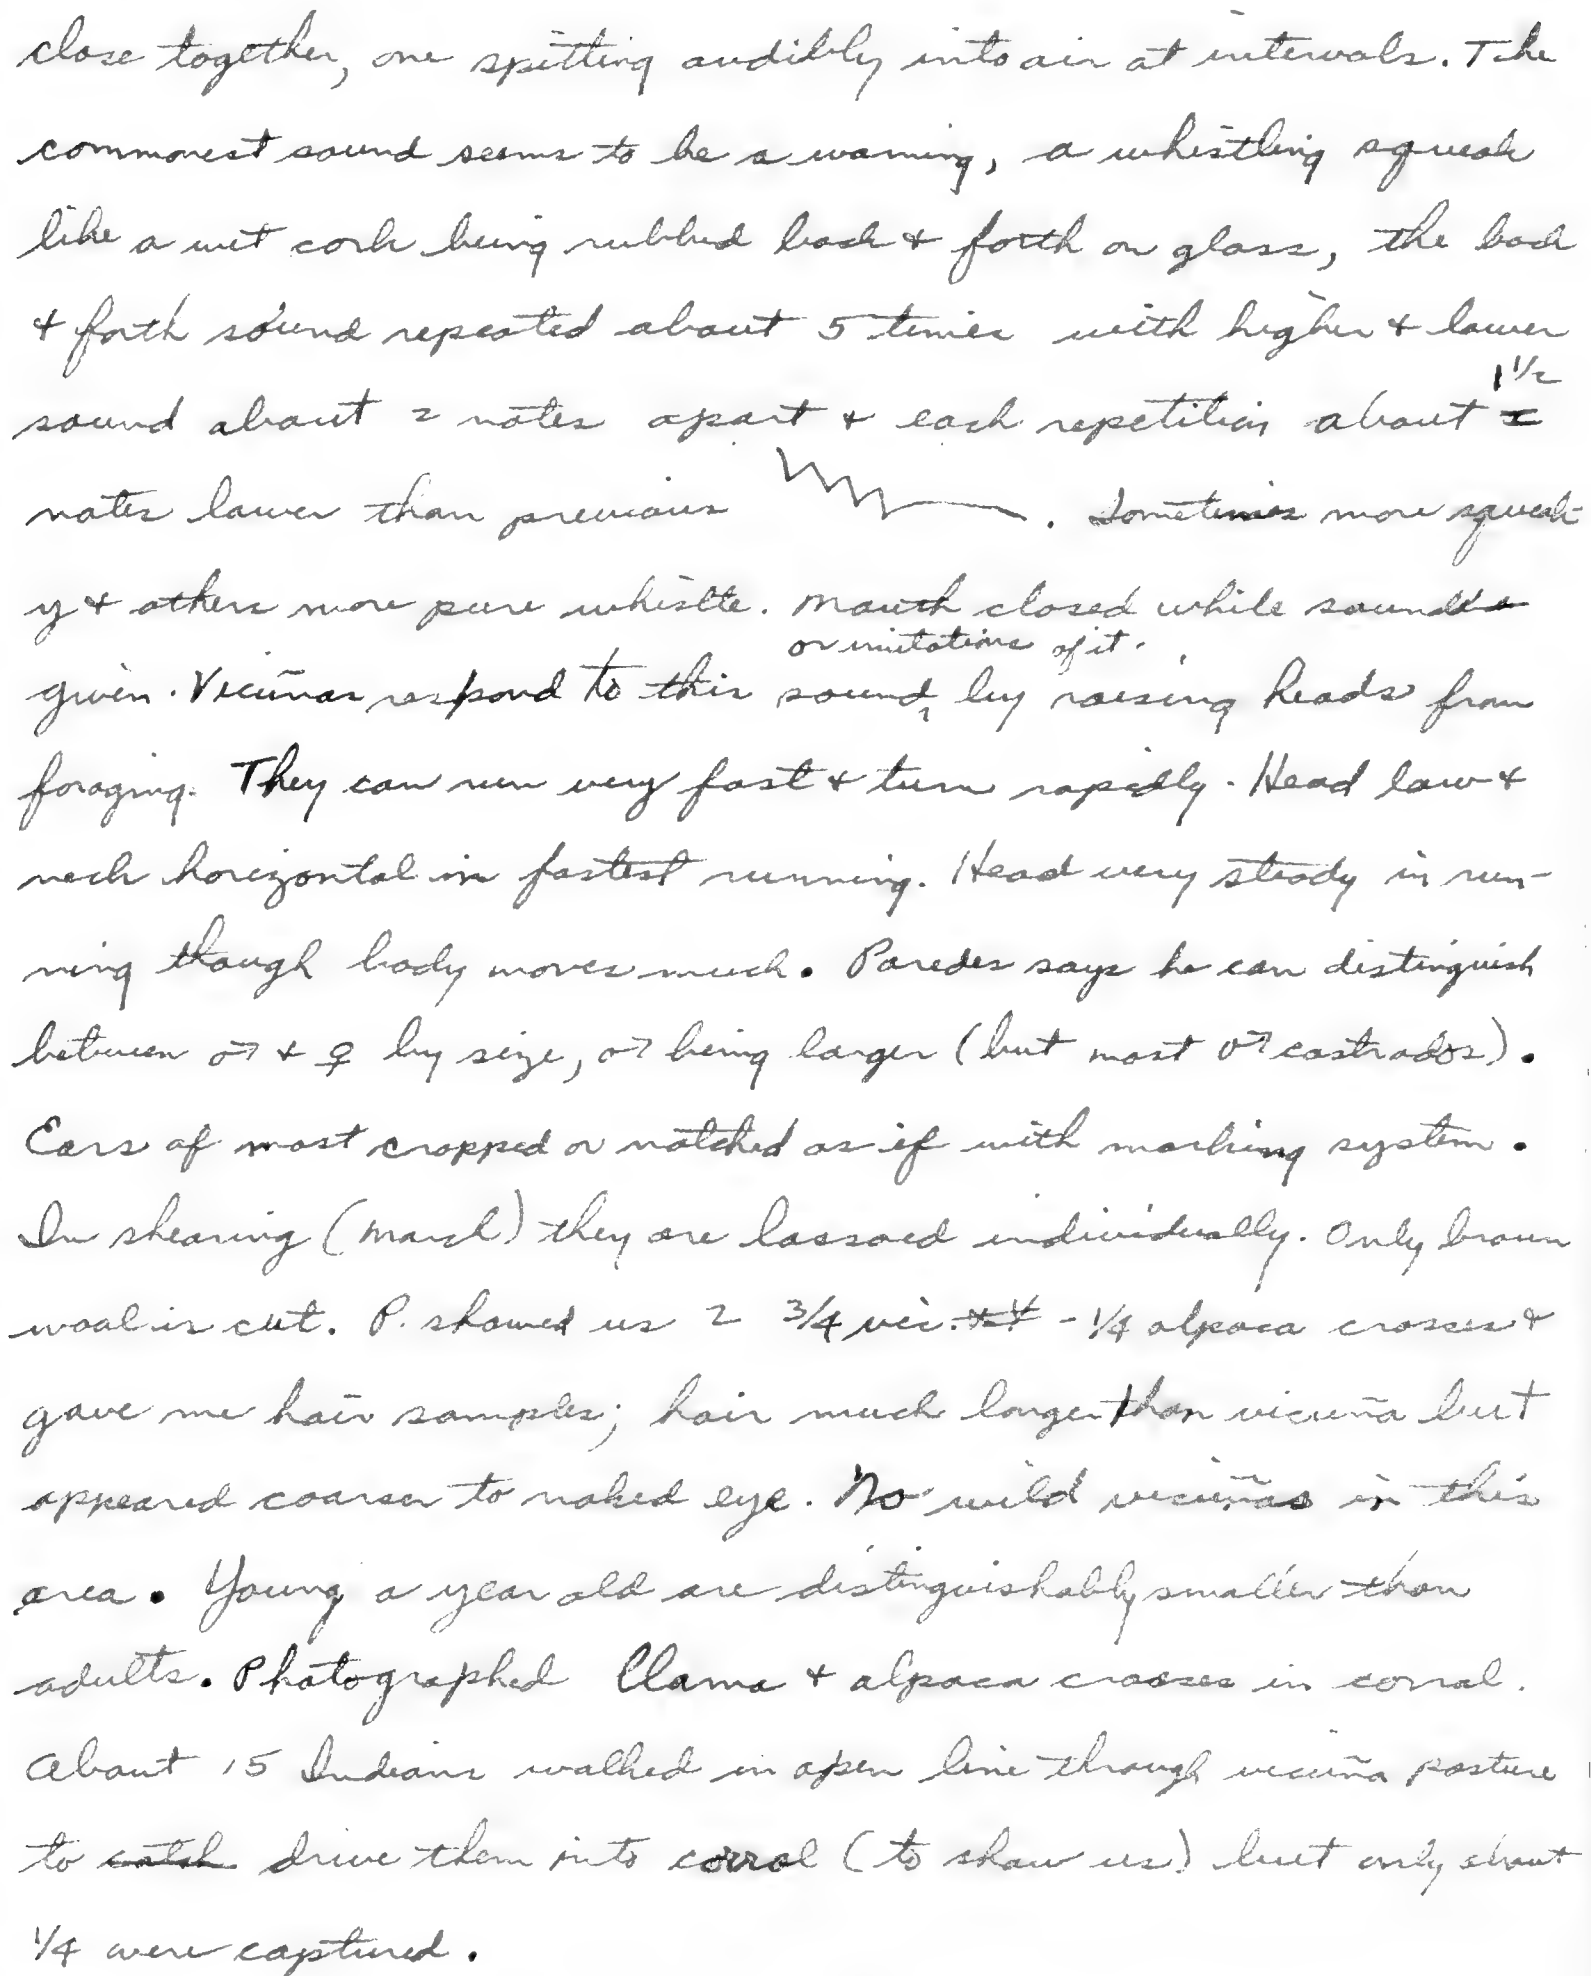 close together, one spitting audibly into air at intervals. The
commonest sound seems to be a warning, a whistling squeak
like a wet cork being rubbed back & forth on glass, the back
& forth sound repeated about 5 times with higher & lower
1 1/2
sound about 2 notes apart & each repetition about
notes lower than previous . Sometimes more squeak-
y & others more pure whistle. Mouth closed while sound
or imitations of it.
given. Vicuñas respond to this sound, by raising heads from
foraging. They can run very fast & turn rapidly. Head low &
neck horizontal in fastest running. Head very steady in run-
ning though body moves much. Paredes says he can distinguish
between ♂ & ♀ by size, ♂ being larger (but most ♂ castrados).
Ears of most cropped or notched as if with marking system.
In shearing (March) they are lassoed individually. Only brown
wool is cut. P. showed us 2 3/4 vic. - 1/4 alpaca crosses &
gave me hair samples; hair much longer than vicuña but
appeared coarser to naked eye. No wild vicuñas in this
area. Young a year old are distinguishably smaller than
adults. Photographed llama & alpaca crosses in corral.
About 15 Indians walked in open line through vicuña pasture
to catch drive them into corral (to show us) but only about
1/4 were captured.